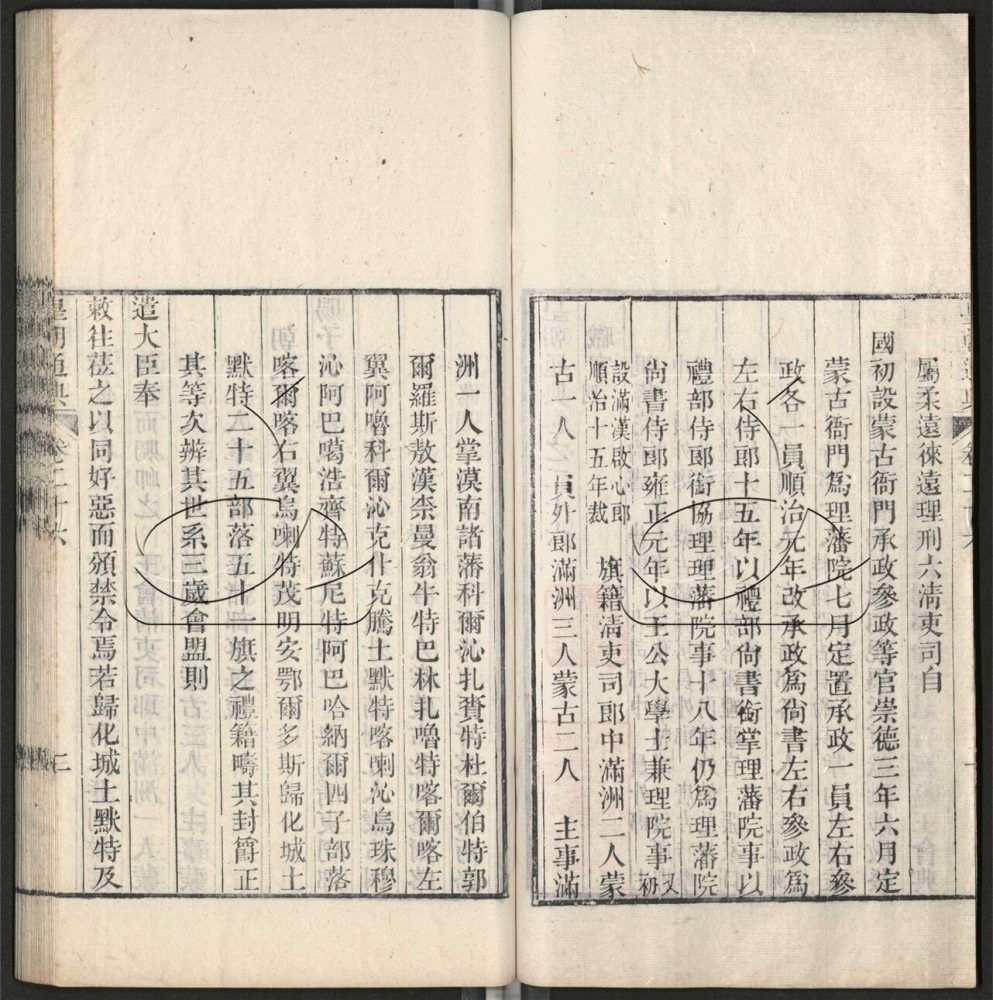 皇朝通典
卷二十六
一
屬柔遠徠遠理刑六淸吏司自
國初設蒙古衙門承政參政等官崇德三年六月定
蒙古衙門爲理藩院七月定置承政一員左右參
政各一員順治元年改承政爲尚書左右參政爲
左右侍郎十五年以禮部尚書銜掌理藩院事以
禮部侍郎銜協理理藩院事十八年仍爲理藩院
尚書侍郎雍正元年以王公大學士兼理院事又初
設滿漢啟心郎
順治十五年裁
旗籍淸吏司郎中滿洲二人蒙
古一人
員外郎滿洲三人蒙古二人
主事滿
洲一人掌漠南諸藩科爾沁扎賚特杜爾伯特郭
爾羅斯敖漢柰曼翁牛特巴林扎嚕特喀爾喀左
翼阿嚕科爾沁克什克騰土默特喀喇沁烏珠穆
沁阿巴噶浩齊特蘇尼特阿巴哈納爾四子部落
喀爾喀右翼烏喇特茂明安鄂爾多斯歸化城土
默特二十五部落五十一旗之禮籍疇其封爵正
其等次辨其世系三歲會盟則
遣大臣奉
敕往莅之以同好惡而頒禁令焉若歸化城土默特及
皇朝通典
卷二十六
二